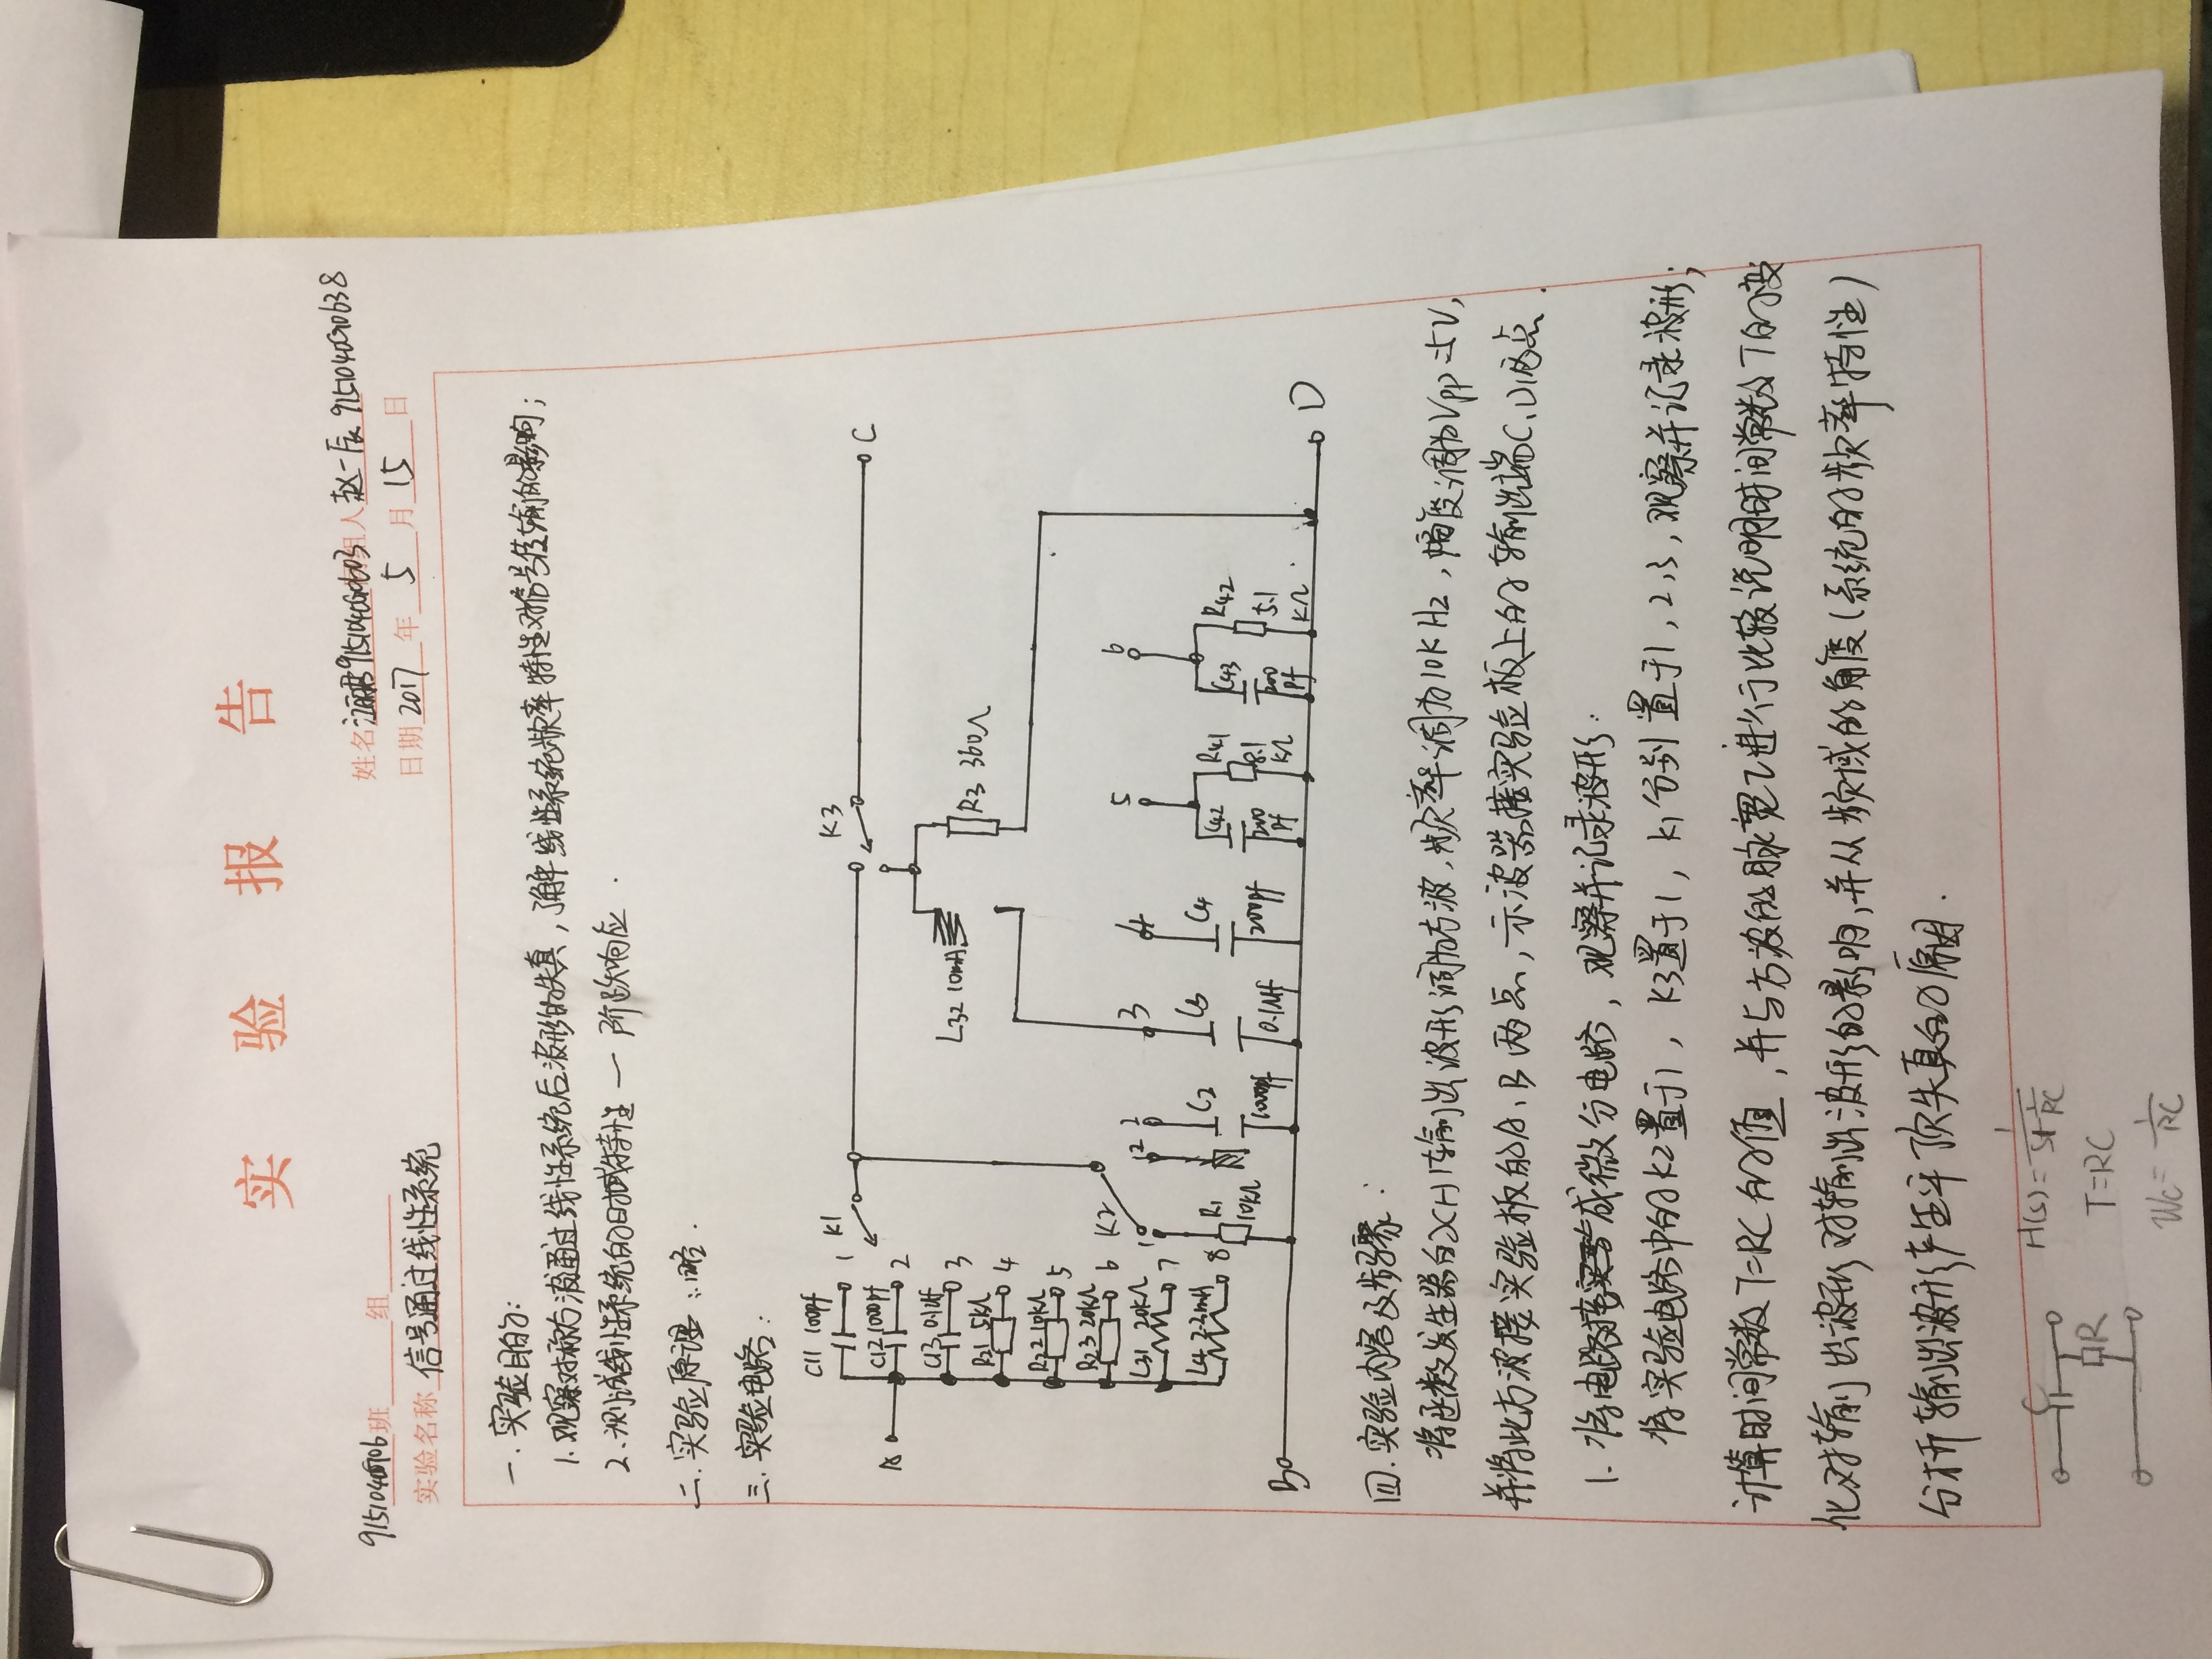 实 验 报 告
915104G06班 组 姓名 915104G0603 同组人 赵一辰 915104G0638
实验名称 信号通过线性系统 日期 2017 年 5 月 15 日
一. 实验目的:
1. 观察对称方波通过线性系统后波形的失真, 了解线性系统频率特性对信号传输的影响;
2. 测试线性系统的时域特性 — 阶跃响应.
二. 实验原理: 略.
三. 实验电路:
C11 100pf 1 K1 K3
A C12 1000pf 2 C
C13 0.1uf 3 L32 10mH
R21 5kΩ 4 R3 360Ω
R22 10kΩ 5
R23 20kΩ 6 K2
L31 20kΩ 7 1 2 2 3 4 5 6
L4 2.2mH 8 R1 10kΩ C2 1000pf C3 0.1uf C4 200pf C42 200pf R41 8.1kΩ C43 200pf R42 5.1kΩ
B D
四. 实验内容及步骤:
将函数发生器的CH1输出波形调为方波, 频率调为10KHz, 幅度调为Vpp=5V,
并将此方波接实验板的A、B两点, 示波器接实验板上的输出端C、D两点.
1. 将电路接成微分电路, 观察并记录波形:
将实验电路中的K2置于1, K3置于1, K1分别置于1, 2, 3, 观察并记录波形;
计算时间常数T=RC的值, 并与方波的脉宽τ进行比较说明时间常数T的变
化对输出波形对输出波形的影响, 并从频域的角度(系统的频率特性)
分析输出波形产生平顶失真的原因.
C H(s)=1/(s+1/RC)
R T=RC
Wc=1/RC